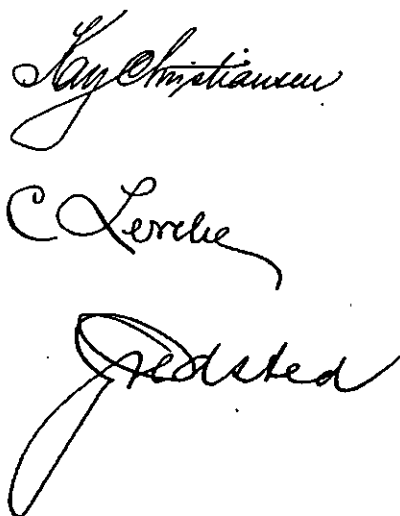 Kay Christiansen
C Lerche
Fredsted